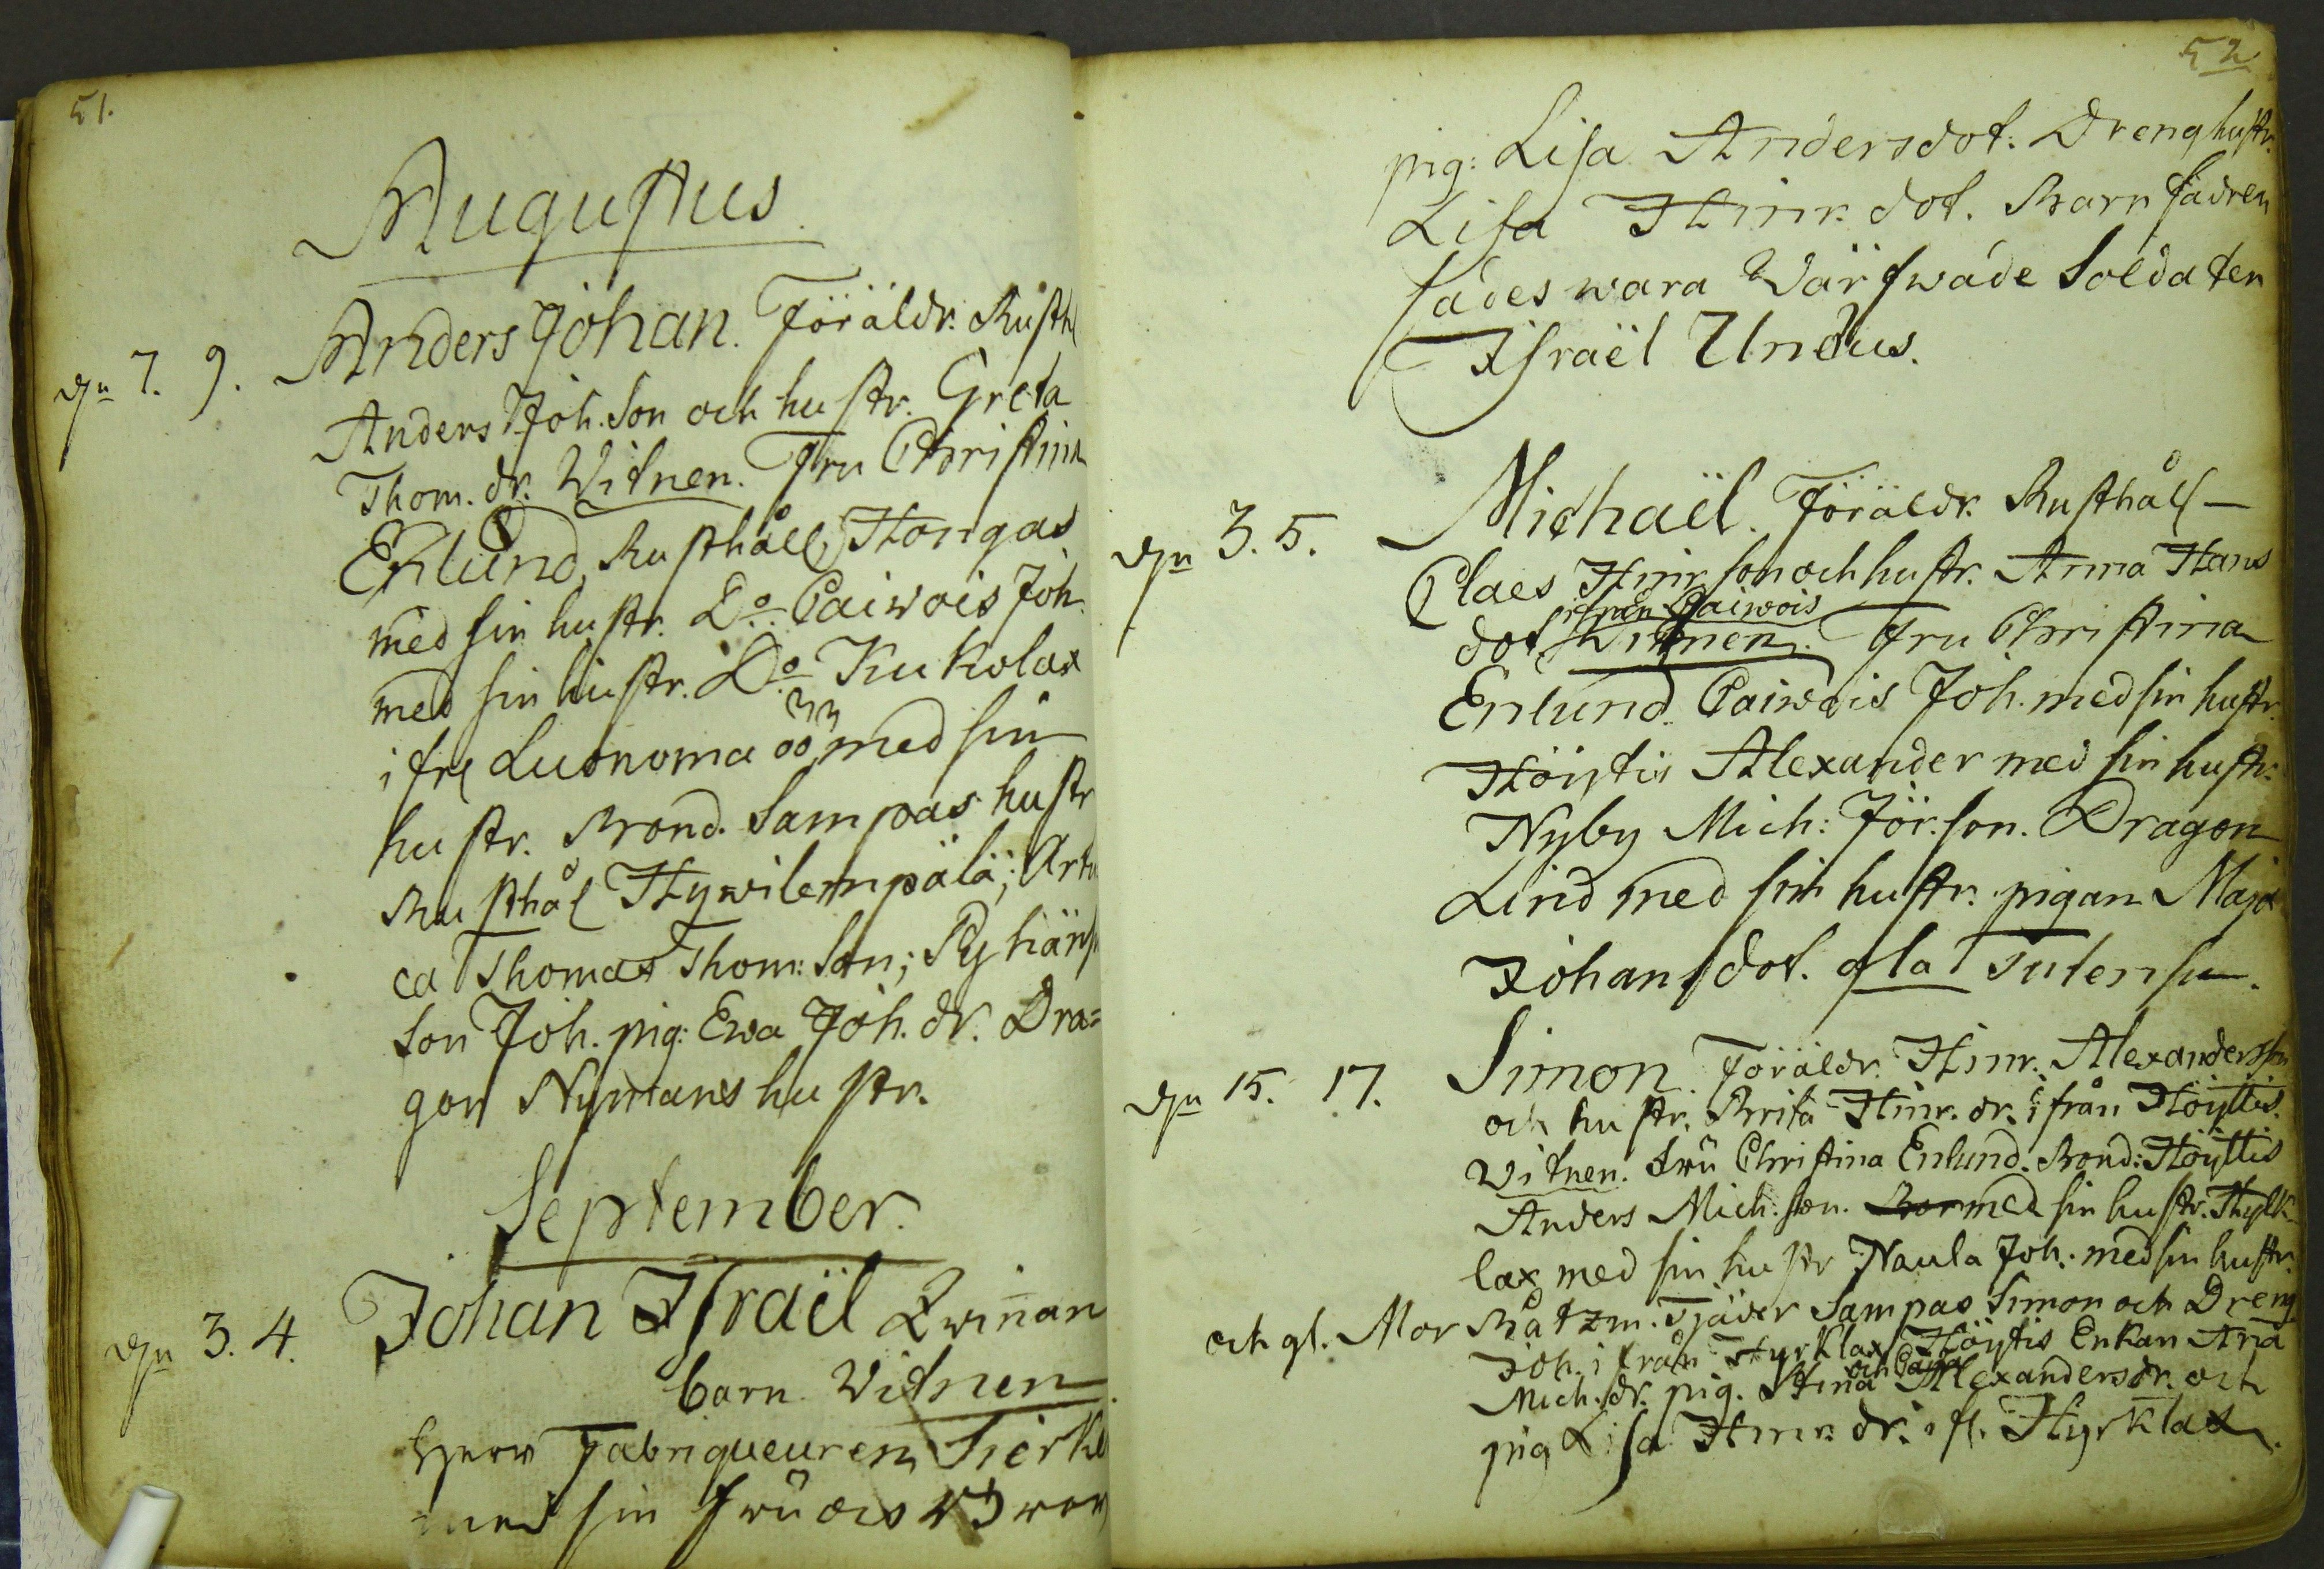 51.
Augustus
den 7. 9. Anders Johan. Föräldr. Rusth
Anders Joh. Son och hustr. Greta
Thom. dr. Witnen. Fru Christina
Enlund, Rusthåll, Hongas
med sin hustr. Do. Paiwois Joh.
med sin hustr. Do Kukolax
ifrå Luonoma med sin
hustr. Bond. Sampas hustr
Rusthål Hywilempälä; Artu
ca Thomas Thom: Son;
son Joh. pig: Ewa Joh. dr. Dra=
gon Nymans hustr.
September.
den 3. 4. Johan Israël Qwinnan
barn. Witnen
Herr Fabriqueuren
med sin fru och
52
pig: Lisa Andersdot: Dreng hustr.
Lisa Hinr. dot. Barn fadren
sades wara Wärfwade Soldaten
Israël Undus.
den 3. 5. Michaël. Föräldr. Rusthåll
Claes Hinr son och hustr. Anna Hans
ifrån Paiwois
dot. Witnen. Fru Christina
Enlund. Paiwois Joh. med sin hustr.
Höijtis Alexander med sin hustr:
Nyby Mich: Jör. son. Dragon
Lind med sin hustr: pigan Maja
Johansdot.
den 15. 17. Simon. Föräldr. Hinr. Alexandersson
och hustr. Brita Hinr. dr. ifrån Höijtis.
Witnen. Fru Christina Enlund. Bond: Höijtis
Anders Mich: son. med sin hustr.
lax med sin hustr Naula Joh. med sin hustr.
och gl. Mor Båtzm. Tjäder Sampas Simon och Dreng
Joh. ifrån Hyrklax Höijtis Enkan Ana
och Caja
Mich. dr. pig. Stina Alexandersdr. och
pig Lisa Hinr. dr. ifr. Hyrklax